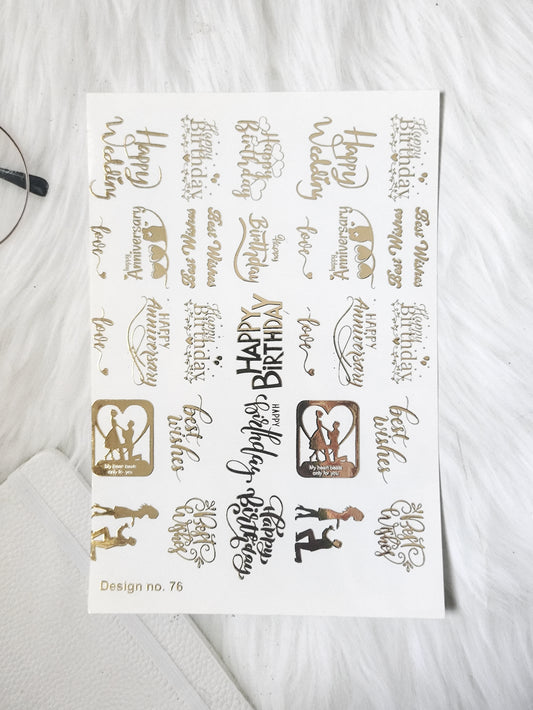 Happy
Wedding
Happy
Birthday
Happy
Birthday
Happy
Wedding
Happy
Birthday
love
Happy
Anniversary
Best Wishes
Best Wishes
Happy
Birthday
love
Happy
Anniversary
Best Wishes
Best Wishes
love
HAPPY
Anniversary
Happy
Birthday
HAPPY
BIRTHDAY
love
HAPPY
Anniversary
Happy
Birthday
My heart beats
only for you
best
wishes
HAPPY
birthday
My heart beats
only for you
best
wishes
Best
Wishes
Happy
Birthday
Best
Wishes
Design no. 76